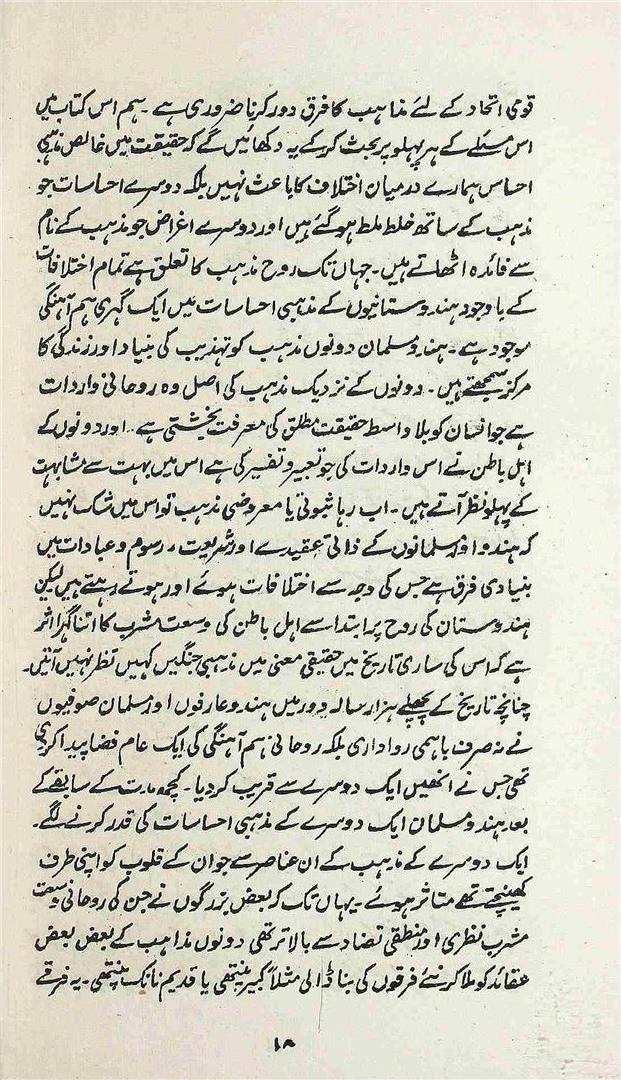 قومی اتحاد کے لئے مذاہب کا فرق دور کرنا ضروری ہے ۔ ہم اس کتاب میں
اس مسئلے کے ہر پہلو پر بحث کر کے یہ دکھائیں گے کہ حقیقت میں خالص مذہبی
احساس ہمارے درمیان اختلاف کا باعث نہیں بلکہ دوسرے احساسات جو
مذہب کے ساتھ خلط ملط ہو گئے ہیں اور دوسرے اغراض جو مذہب کے نام
سے فائدہ اٹھاتے ہیں ۔ جہاں تک روح مذہب کا تعلق ہے تمام اختلافات
کے باوجود ہندوستانیوں کے مذہبی احساسات میں ایک گہری ہم آہنگی
موجود ہے ۔ ہندو مسلمان دونوں مذہب کو تہذیب کی بنیاد اور زندگی کا
مرکز سمجھتے ہیں ۔ دونوں کے نزدیک مذہب کی اصل وہ روحانی واردات
ہے جو انسان کو بلا واسطہ حقیقت مطلق کی معرفت بخشتی ہے ۔ اور دونوں کے
اہل باطن نے اس واردات کی جو تعبیر و تفسیر کی ہے اس میں بہت سے مشابہت
کے پہلو نظر آتے ہیں ۔ اب رہا ثبوتی یا معروضی مذہب تو اس میں شک نہیں
کہ ہندو اور مسلمانوں کے ذاتی عقیدے اور شریعت ، رسوم و عبادات میں
بنیادی فرق ہے جس کی وجہ سے اختلافات ہوئے اور ہوتے رہتے ہیں لیکن
ہندوستان کی روح پر ابتدا سے اہل باطن کی وسعت مشرب کا اتنا گہرا اثر
ہے کہ اس کی ساری تاریخ میں حقیقی معنی میں مذہبی جنگیں کہیں نظر نہیں آتیں ۔
چنانچہ تاریخ کے پچھلے ہزار سالہ دور میں ہندو عارفوں اور مسلمان صوفیوں
نے نہ صرف باہمی رواداری بلکہ روحانی ہم آہنگی کی ایک عام فضا پیدا کر دی
تھی جس نے انھیں ایک دوسرے سے قریب کر دیا ۔ کچھ مدت کے سابقے کے
بعد ہندو مسلمان ایک دوسرے کے مذہبی احساسات کی قدر کرنے لگے ۔
ایک دوسرے کے مذہب کے ان عناصر سے جو ان کے قلوب کو اپنی طرف
کھینچتے تھے متاثر ہوئے ۔ یہاں تک کہ بعض بزرگوں نے جن کی روحانی وسعت
مشرب نظری اور منطقی تضاد سے بالاتر تھی دونوں مذاہب کے بعض بعض
عقائد کو ملا کر نئے فرقوں کی بنا ڈالی مثلاً کبیر پنتھی یا قدیم نانک پنتھی ۔ یہ فرقے
۱۸